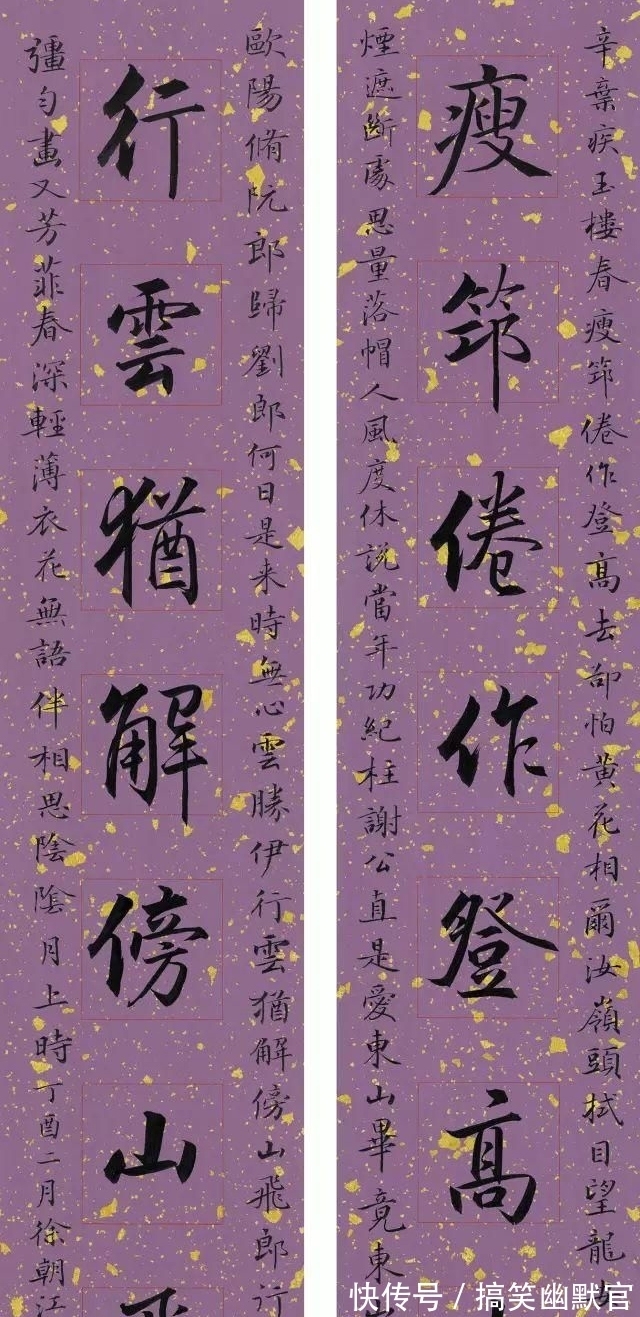 辛棄疾玉樓春瘦筇倦作登高去卻怕黄花相爾汝嶺頭拭目望龍
瘦筇倦作登高
煙遮斷處思量落帽人風度休説當年功紀柱謝公直是愛東山畢竟東
歐陽脩阮郎歸劉郎何日是来時無心雲勝伊行雲猶解傍山飛郎行
行雲猶解傍山
彊勻畫又芳菲春深輕薄衣花無語伴相思陰陰月上時丁酉二月徐朝江
快传号/搞笑幽默官